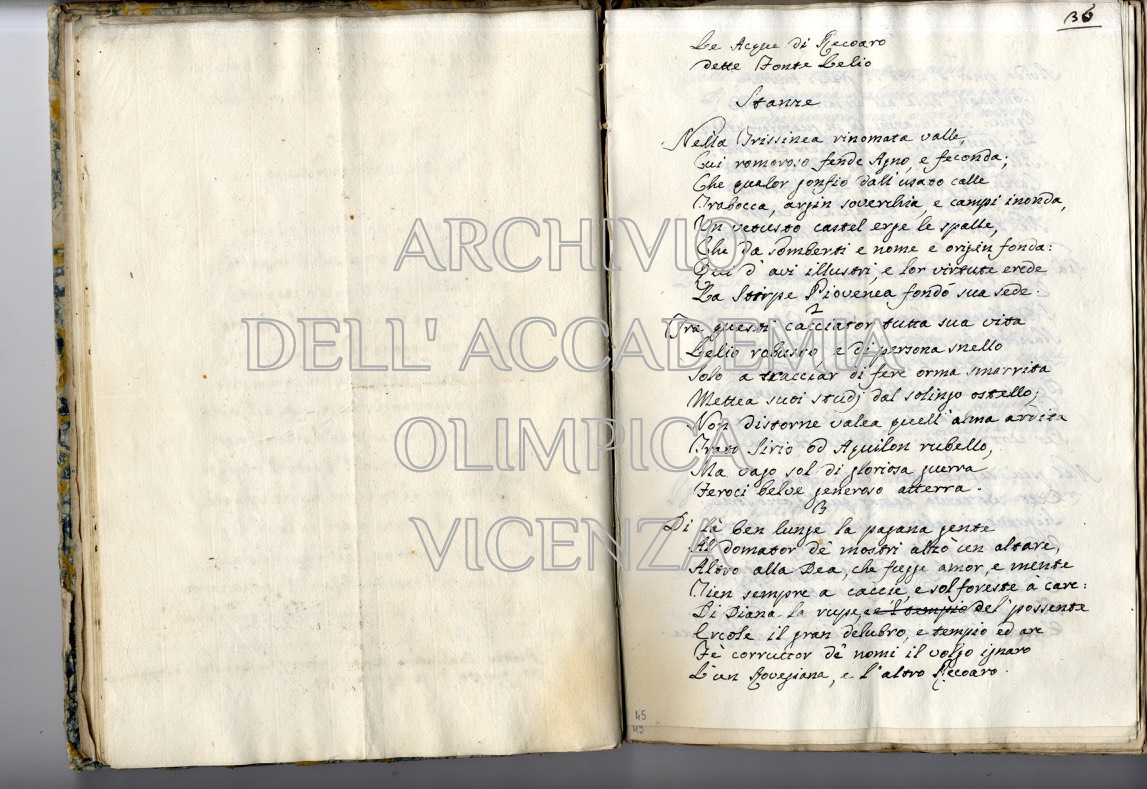 36
Le Acque di Recoaro
dette Fonte Lelio
Stanze
Nella Trissinea rinomata valle,
Cui romoroso fende Agno, e feconda;
Che qualor gonfio dall'usato calle
Trabocca, argin soverchia, e campi inonda,
Un vetusto castel erge le spalle,
Che da Lomberti e nome e origin fonda:
Qui d'avi illustri, e lor virtute erede
La Stirpe Piovenea fondò sua sede.
2
Tra questi cacciator tutta sua vita
Lelio robusto e di persona snello
Solo a tracciar di fere orma smarrita
Mettea suoi studj dal solingo ostello;
Non distorne valea quell'alma ardita
Irato Sirio od Aquilon rubello,
Ma vago sol di gloriosa guerra
Feroci belve generoso atterra.
3
Di là ben lunge la pagana gente
Al domator de' mostri alzò un altare,
Altro alla Dea, che fugge amor, e mente
Tien sempre a caccie, e sol foreste à care:
Di Diana la rupe, e 'l tempio del possente
Ercole il gran delubro, e tempio ed are
Fè corruttor de' nomi il volgo ignaro
L'un Rovegiana, e l'altro Recoaro.
45
45
ARCHIVIO
DELL' ACCADEMIA
OLIMPICA
VICENZA